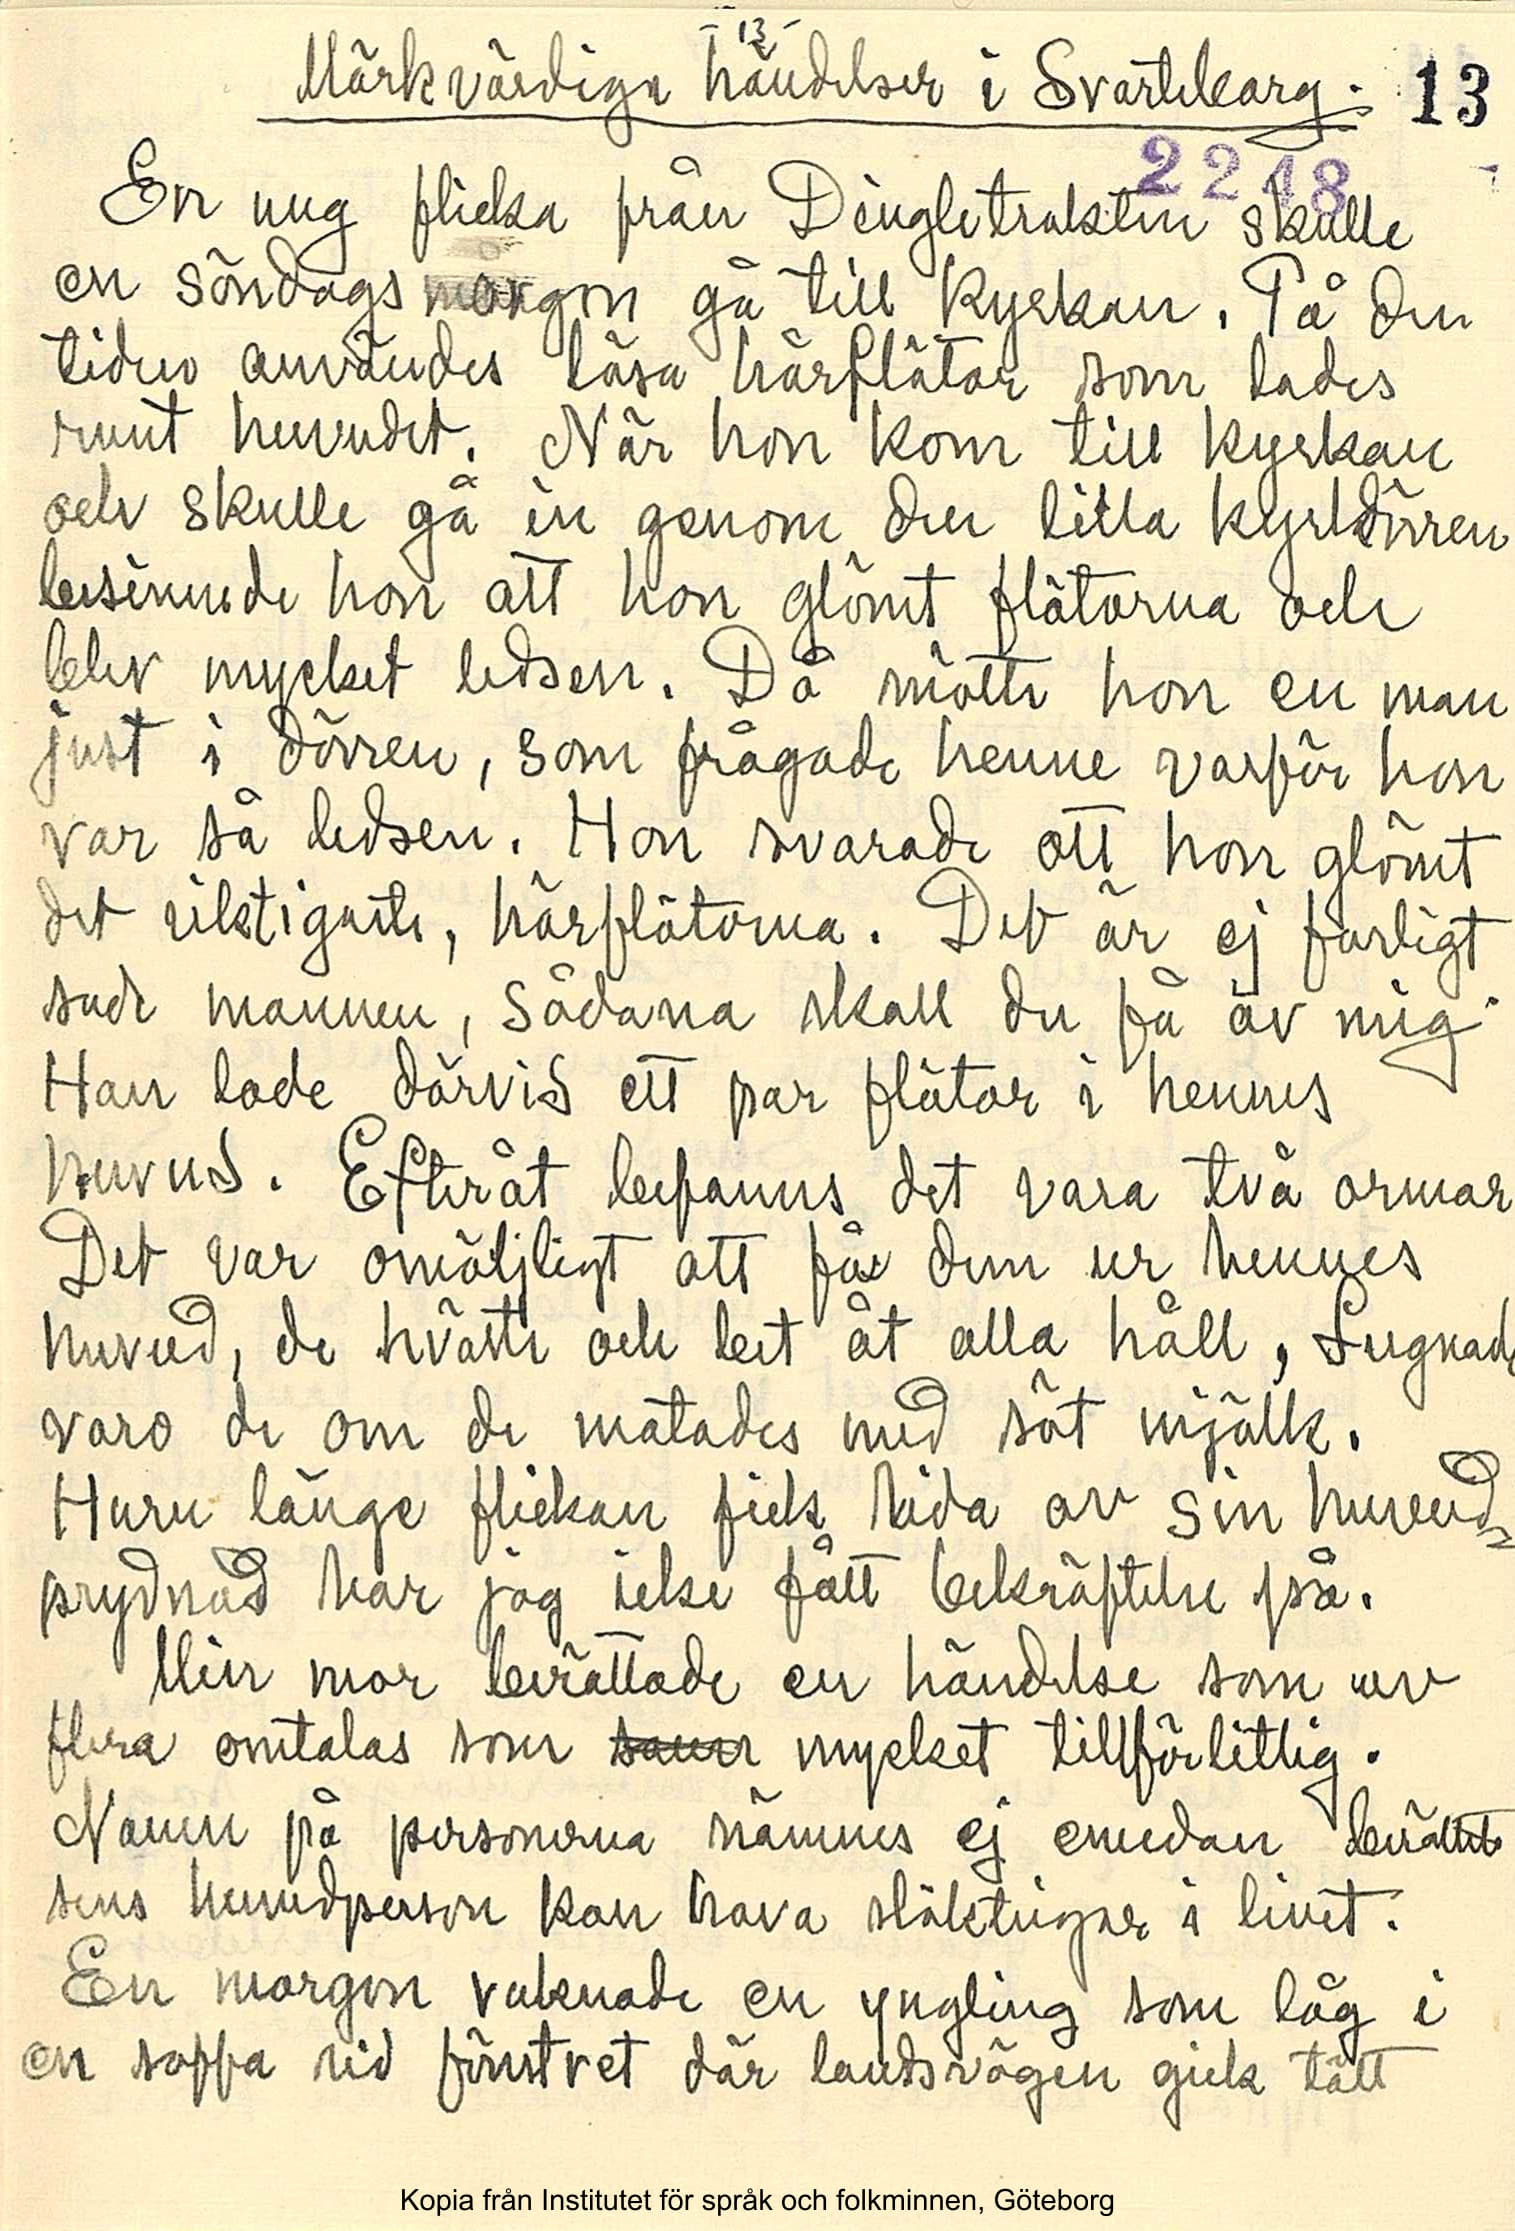 - 13 -
Märkvärdiga händelser i Svarteborg. 13
2248
En ung flicka från Dingletrakten skulle
en söndagsmorgon gå till kyrkan. På den
tiden användes lösa hårflätor som lades
runt huvudet. När hon kom till kyrkan
och skulle gå in genom den lilla kyrkdörren
besinnade hon att hon glömt flätorna och
blev mycket ledsen. Då mötte hon en man
just i dörren, som frågade henne varför hon
var så ledsen. Hon svarade att hon glömt
det viktigaste, hårflätorna. Det är ej farligt
sade mannen, sådana skall du få av mig.
Han lade därvid ett par flätor i hennes
huvud. Efteråt befanns det vara två ormar
Det var omöjligt att få dem ur hennes
huvud, de hväste och bet åt alla håll, Lugnade
varo de om de matades med söt mjölk.
Huru länge flickan fick lida av sin huvud=
prydnad har jag icke fått bekräftelse på.
Min mor berättade en händelse som av
flera omtalas som sann mycket tillförlitlig.
Namn på personerna nämnes ej emedan berättel
sens huvudperson kan hava släktingar i livet.
En morgon vaknade en yngling som låg i
en soffa vid fönstret där landsvägen gick tätt
Kopia från Institutet för språk och folkminnen, Göteborg